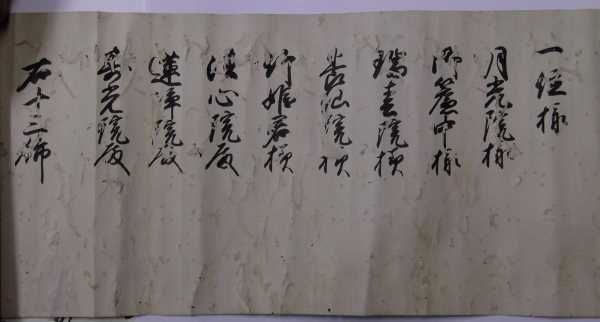 一位様
月光院様
御簾中様
瑞春院様
養仙院様
竹姫君様
法心院殿
蓮浄院殿
寿光院殿
右十二